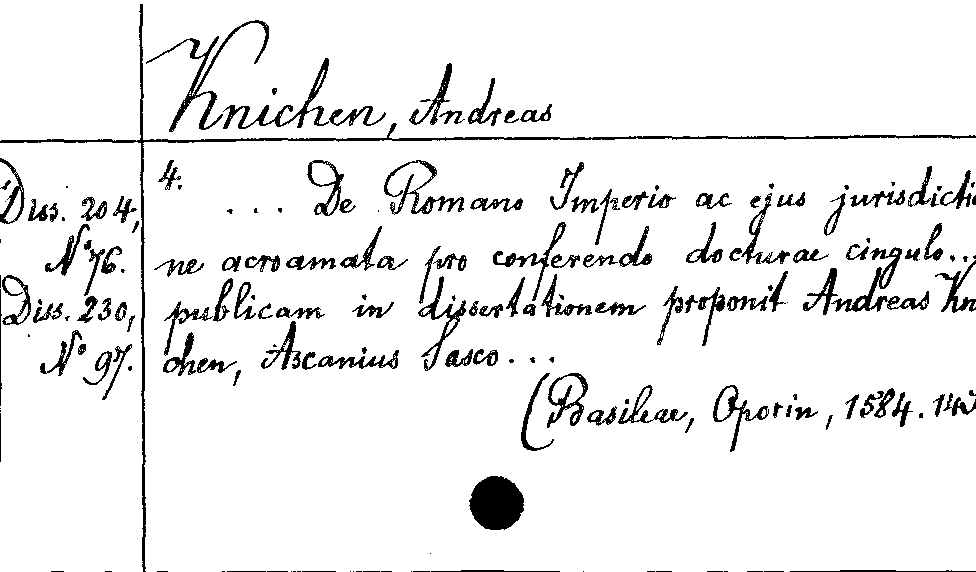 Knichen, Andreas
4.
Diss. 204,
N° 76.
Diss. 230,
N° 97.
... De Romano Imperio ac ejus jurisdictio
ne acroamata pro conferendo docturae cingulo...
publicam in dissertationem proponit Andreas Kni
chen, Ascanius Saxo...
(Basileae, Oporin, 1584.